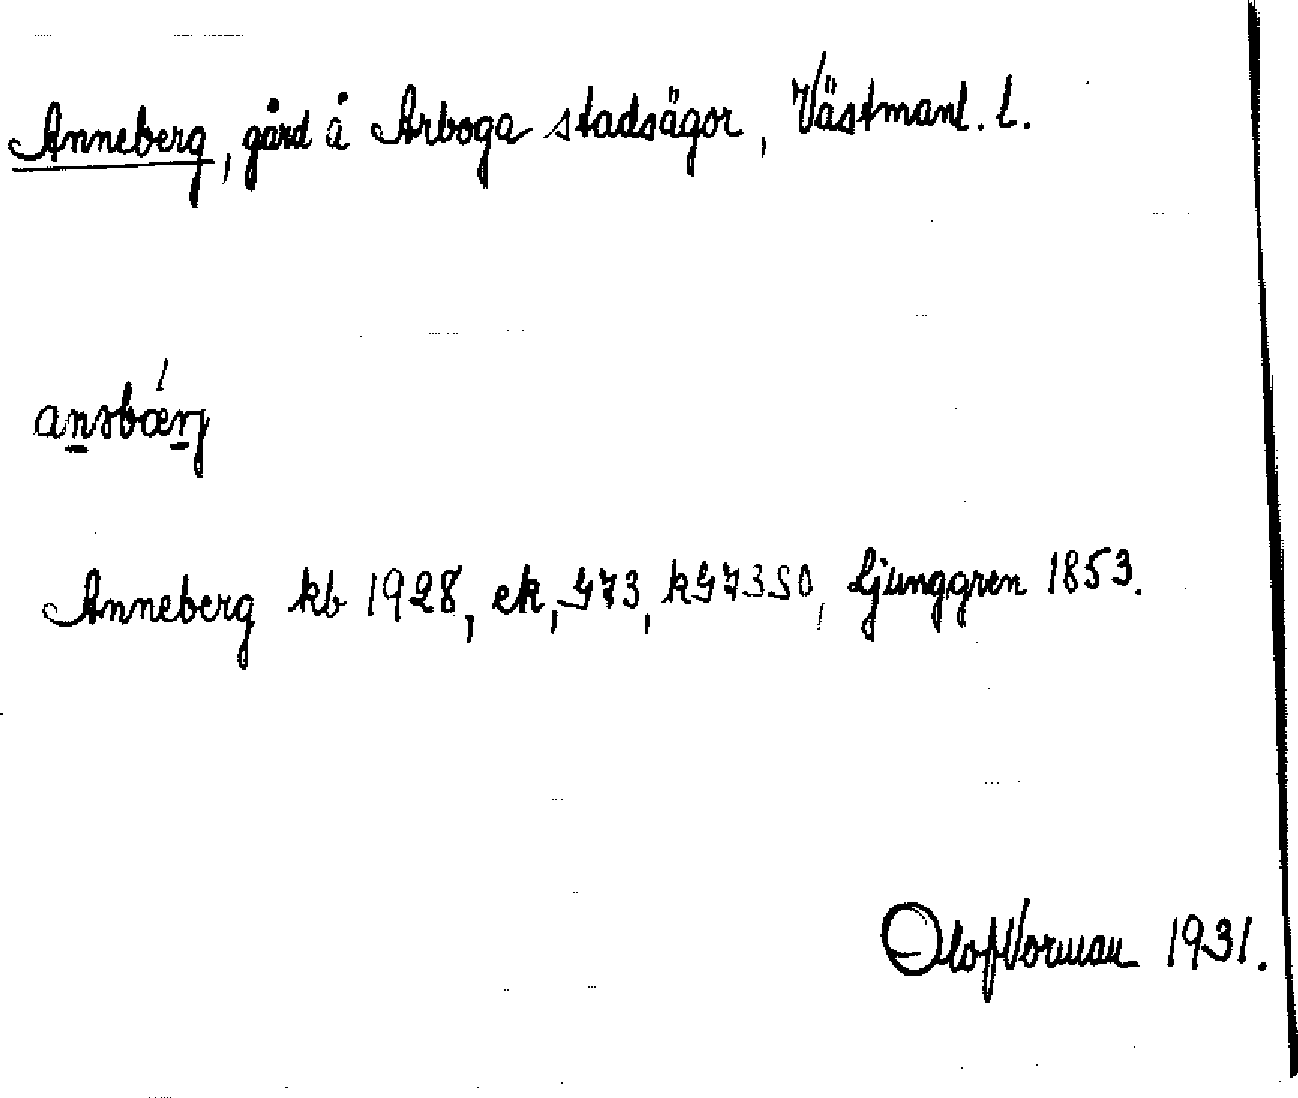 Anneberg, gård å Arboga stadsägor, Västmanl. l.
Anneberg kb 1928, ek, G73, kG73SO, Ljunggren 1853.
Olof Vorman 1931.